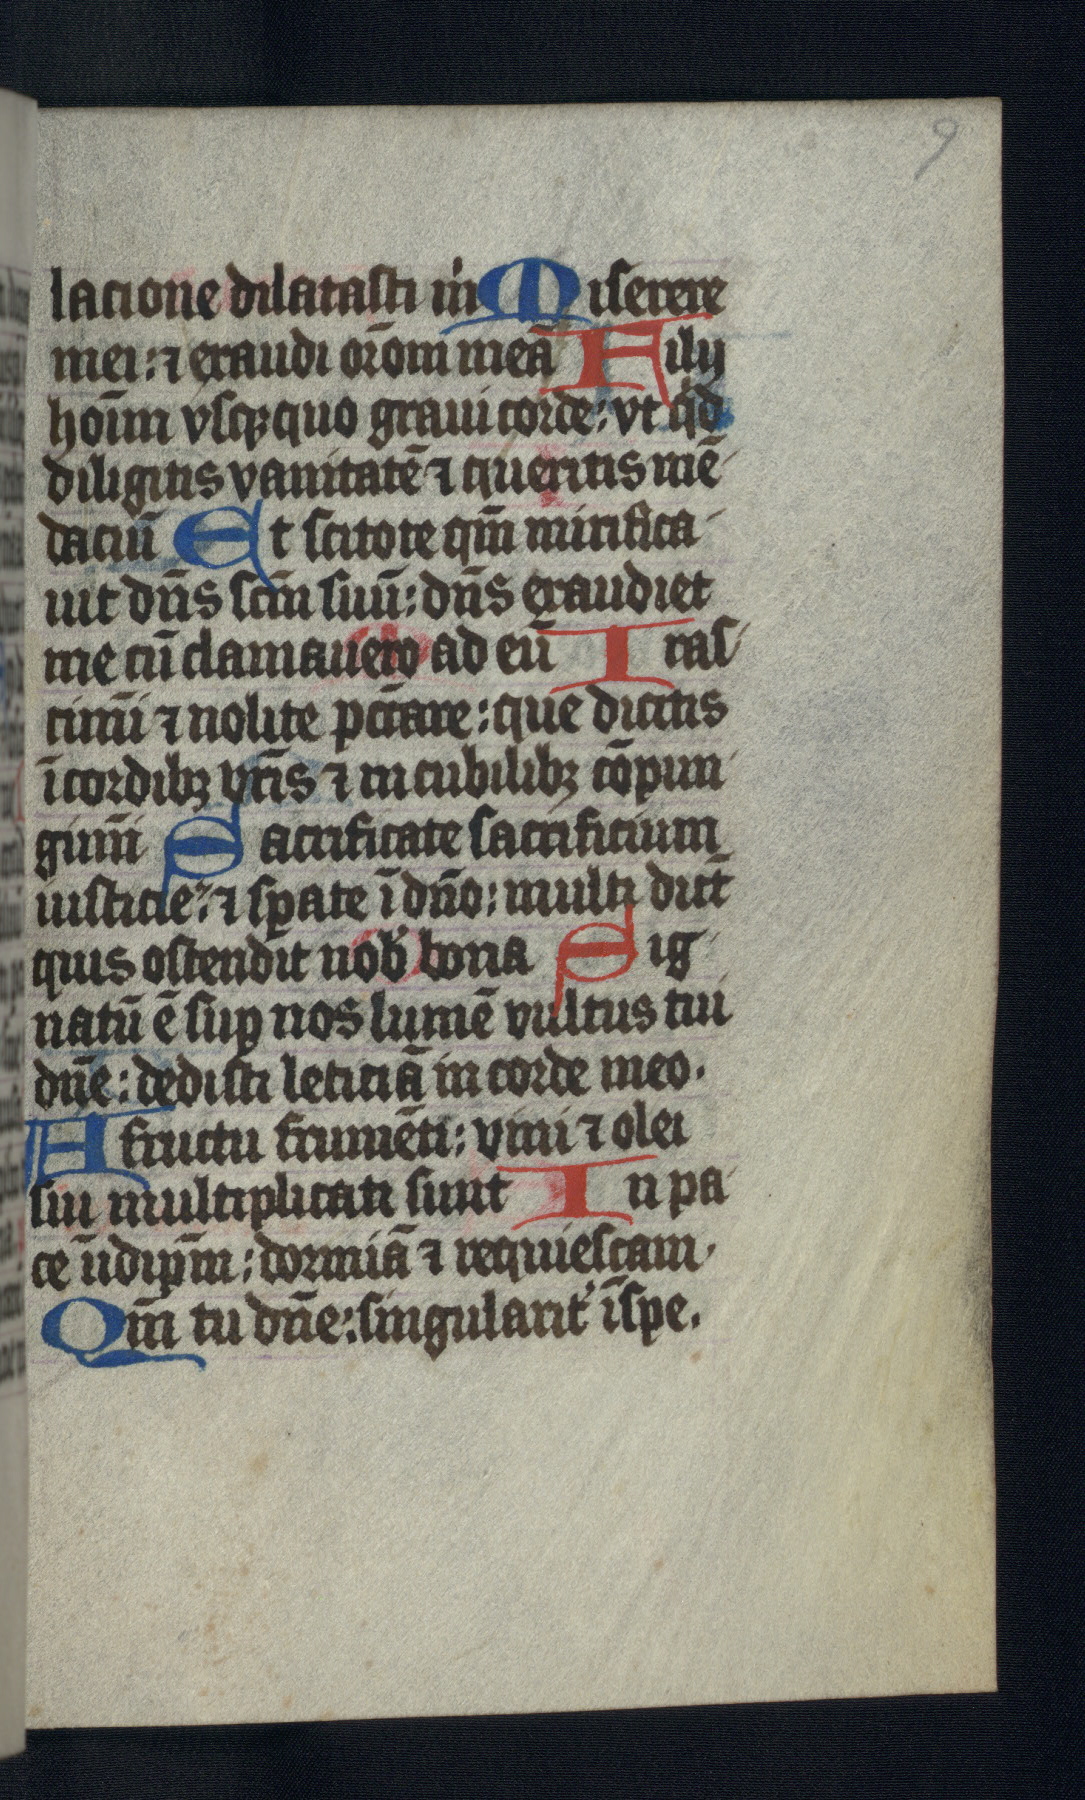 9
lacione dilatasti m̍ Miserere
mei: ⁊ exaudi or̄om meā Filij
hoīm vsqꝫquo graui corde: vt q̍d
diligitis vanitatē ⁊ queritis mē
daciū Et scitote qm̄ mirifica
uit dn̄s scm̄ suū: dn̄s exaudiet
me cū clamauero ad eū Iras
cimī ⁊ nolite pcc̄are: que dicitis
ī cordibꝫ vr̄is ⁊ in cubilibꝫ cōpun
gimī Sacrificate sacrificium
iusticie: ⁊ sꝑate ī dn̄o: multi dic̄t
quis ostendit nob̍ bona Sig
natū ē suꝑ nos lumē vultus tui
dn̄e: dedisti leticiā in corde meo.
A fructu frumēti: vini ⁊ olei
sui multiplicati sunt In pa
ce īn idip̄m: dormiā ⁊ requiescam
Qm̄ tu dn̄e: singularit̍ ī spe.